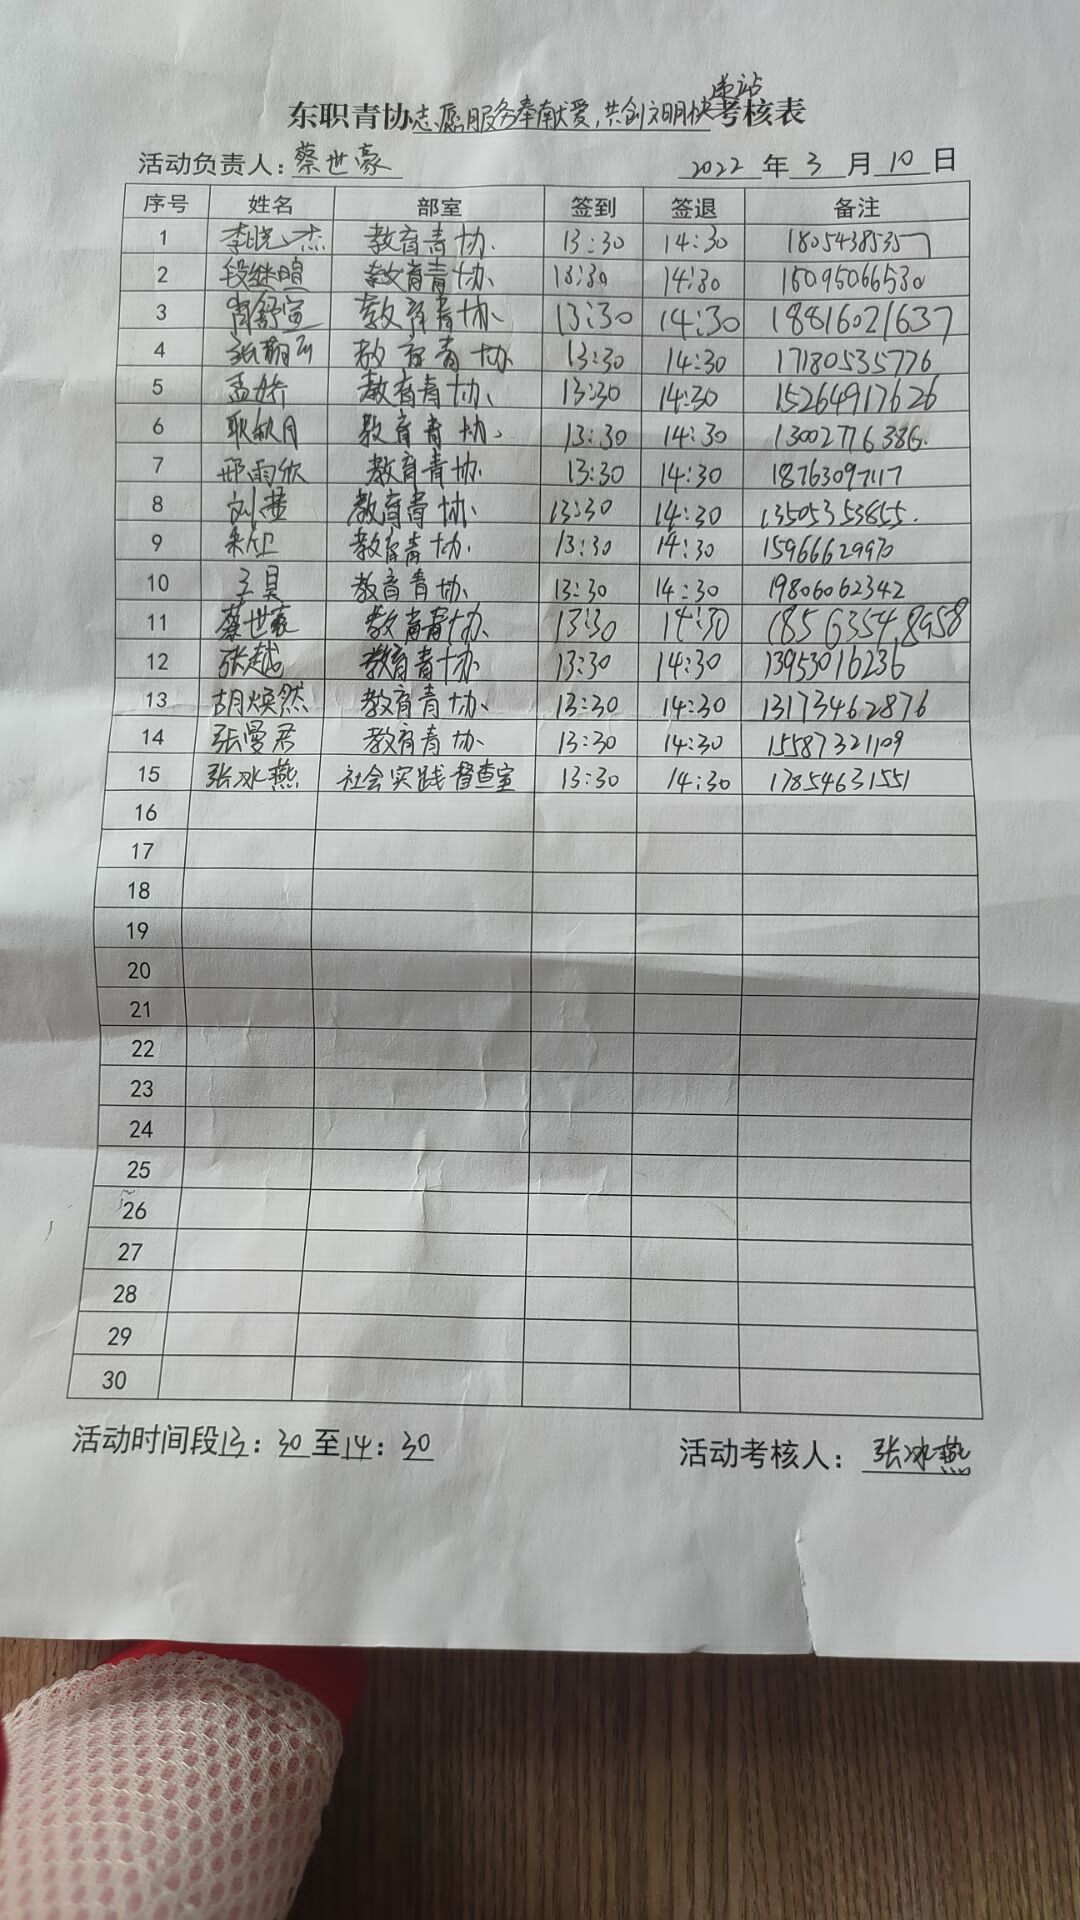 递站
东职青协志愿服务奉献爱,共创文明快考核表
活动负责人:蔡世豪 2022年3月10日
序号 姓名 部室 签到 签退 备注
1 李晓杰 教育青协 13:30 14:30 18054385357
2 段继暄 教育青协 13:30 14:30 15095066530
3 舒宣 教育青协 13:30 14:30 18816021637
4 教育青协 13:30 14:30 17180535776
5 孟娇 教育青协 13:30 14:30 15264917626
6 耿秋月 教育青协 13:30 14:30 13002776386
7 邢雨欣 教育青协 13:30 14:30 18763097117
8 教育青协 13:30 14:30 13505353855
9 教育青协 13:30 14:30 15966629970
10 王昊 教育青协 13:30 14:30 19806062342
11 蔡世豪 教育青协 13:30 14:30 18563548958
12 张越 教育青协 13:30 14:30 13953016236
13 胡焕然 教育青协 13:30 14:30 13173462876
14 张曼君 教育青协 13:30 14:30 15587321109
15 张冰燕 社会实践督查室 13:30 14:30 17854631551
16
17
18
19
20
21
22
23
24
25
26
27
28
29
30
活动时间段13:30至14:30 活动考核人:张冰燕